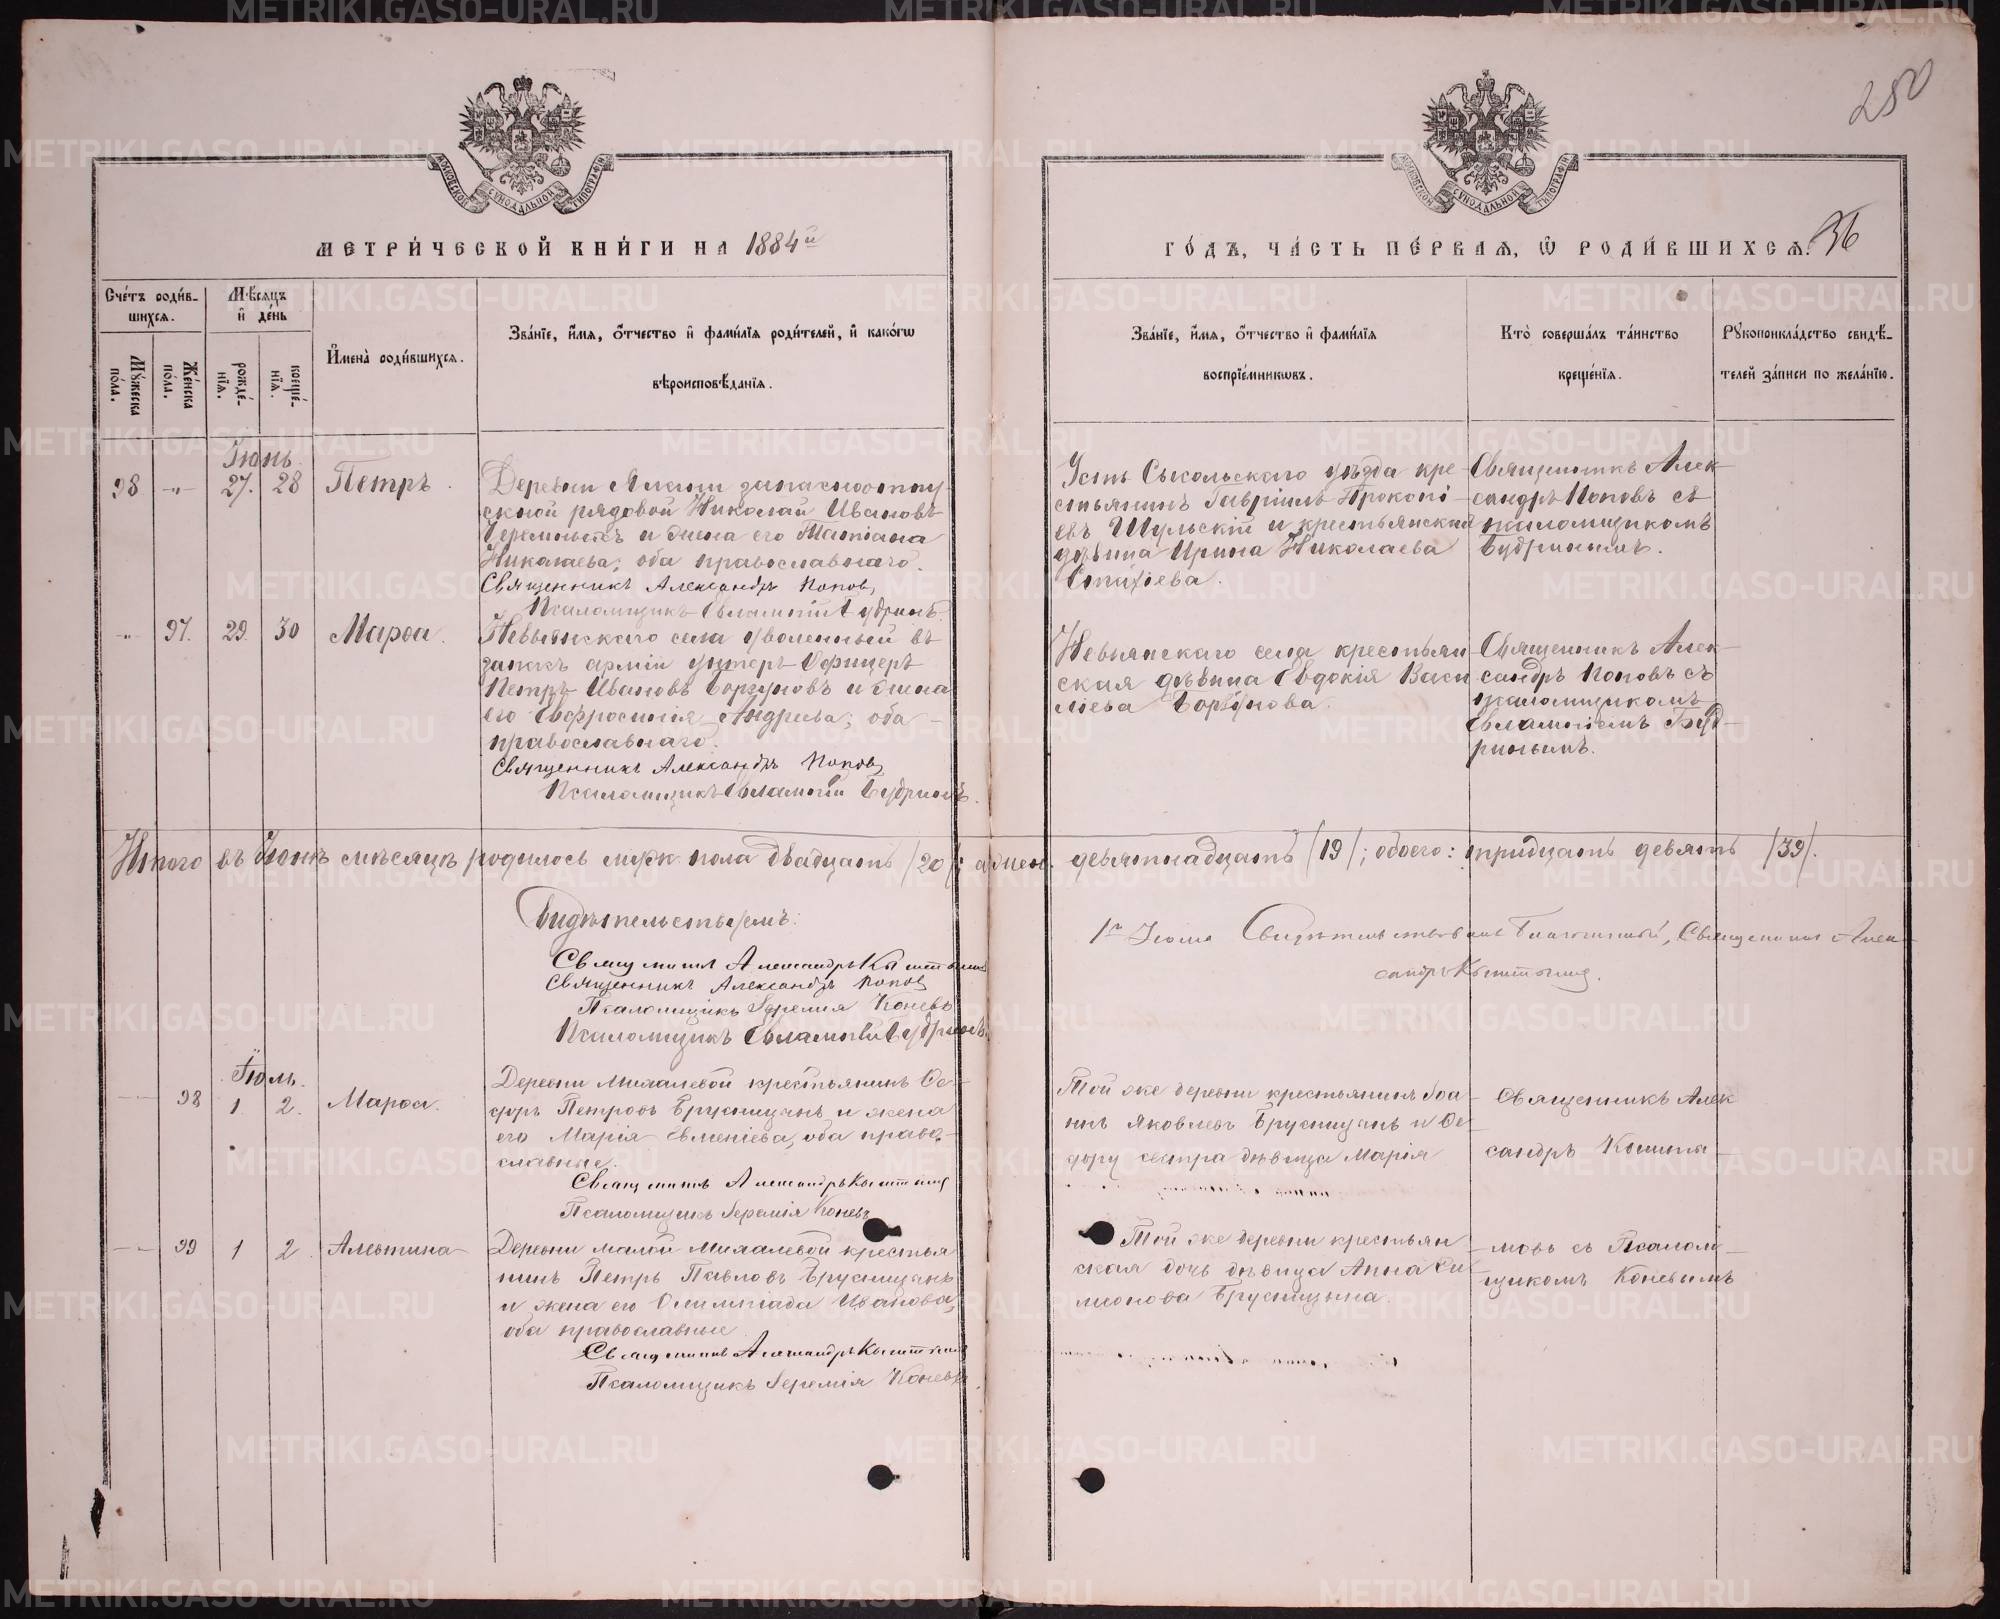 250
МОСКОВСКОЙ СѴНОДАЛЬНОЙ ТИПОГРАФІИ
МОСКОВСКОЙ СѴНОДАЛЬНОЙ ТИПОГРАФІИ
МЕТРИ́ЧЕСКОЙ КНИ́ГИ НА 1884й
ГО́ДЪ, ЧА́СТЬ ПЕ́РВАЯ, Ѡ РОДИ́ВШИХСЯ. 36
Сче́тъ роди́в-
шихся.
Му́жеска по́ла.
Же́нска по́ла.
Мѣ́сяцъ и де́нь
рожде́-нія.
креще́-нія.
Имена̀ роди́вшихся.
Зва́ніе, и́мя, о́тчество и фами́лія роди́телей, и како́гѡ
вѣроисповѣ́данія.
Зва́ніе, и́мя, о́тчество и фами́лія
воспріе́мниковъ.
Кто̀ соверша́лъ та́инство
креще́нія.
Рукоприкла́дство свидѣ́-
телей за́писи по жела́нію.
Іюнь
98 -"- 27. 28 Петръ.
Деревни
скной рядовой Николай Ивановъ
и жена его Татіана
Николаева, оба православнаго.
Священникъ Александръ Поповъ
Псаломщикъ Евлампій Будринъ.
Усть Сысольскаго уѣзда кре-
стьянинъ Гавріилъ Прокопі-
евъ Шульскій и крестьянская
дѣвица Ирина Николаева
Священникъ Алек-
сандръ Поповъ съ
псаломщикомъ
Будринымъ.
-"- 97. 29. 30 Марѳа.
Невьянскаго села уволенный въ
запасъ арміи унтеръ-Офицеръ
Петръ Ивановъ Горгуновъ и жена
его Евфросинія Андреева, оба
православнаго.
Священникъ Александръ Поповъ
Псаломщикъ Евлампій Будринъ.
Невьянскаго села крестьян-
ская дѣвица Евдокія Васи
ліева Горгунова.
Священникъ Алек-
сандръ Поповъ съ
псаломщикомъ
Евлампіемъ Буд-
ринымъ.
Итого въ Іюнѣ мѣсяцѣ родилось муж. пола двадцать /20/; а жен. девятнадцать /19/; обоего: тридцать девять /39/.
Свидѣтельствуемъ:
Священникъ Александръ Кыштымовъ
Священникъ Александръ Поповъ
Псаломщикъ Іеремія Коневъ
Псаломщикъ Евлампій Будринъ.
1го Іюля Свидѣтельствовалъ Благочинный, Священникъ Алек-
сандръ Кыштымовъ.
Іюль.
98 1 2. Марѳа.
Деревни Михалевой крестьянинъ Ѳе-
доръ Петровъ Брусницынъ и жена
его Марія Евменіева, оба право-
славные.
Священникъ Александръ Кыштымовъ
Псаломщикъ Іеремія Коневъ
Той же деревни крестьянинъ Іоа-
ннъ Яковлевъ Брусницынъ и Ѳе-
дору сестра дѣвица Марія
Священникъ Алек
сандръ Кышты-
99 1 2. Алевтина
Деревни малой Михалевой крестья
нинъ Петръ Павловъ Брусницынъ
и жена его Олимпіада Иванова,
оба православные
Священникъ Александръ Кыштымовъ
Псаломщикъ Іеремія Коневъ.
Той же деревни крестьян
ская дочь дѣвица Анна Си-
меонова Брусницына.
мовъ съ Псалом-
щикомъ Коневымъ
METRIKI.GASO-URAL.RU